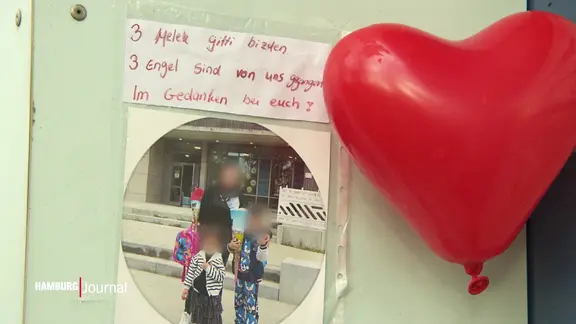 3 Melek gitti bizden
3 Engel Sind von uns gegangen
Im Gedanken bei euch
HAMBURG Journal